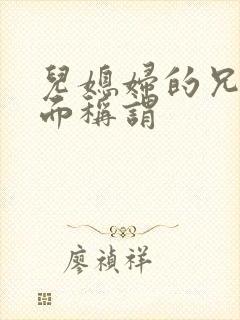 兒媳婦的兄
而稱謂
廖禎祥